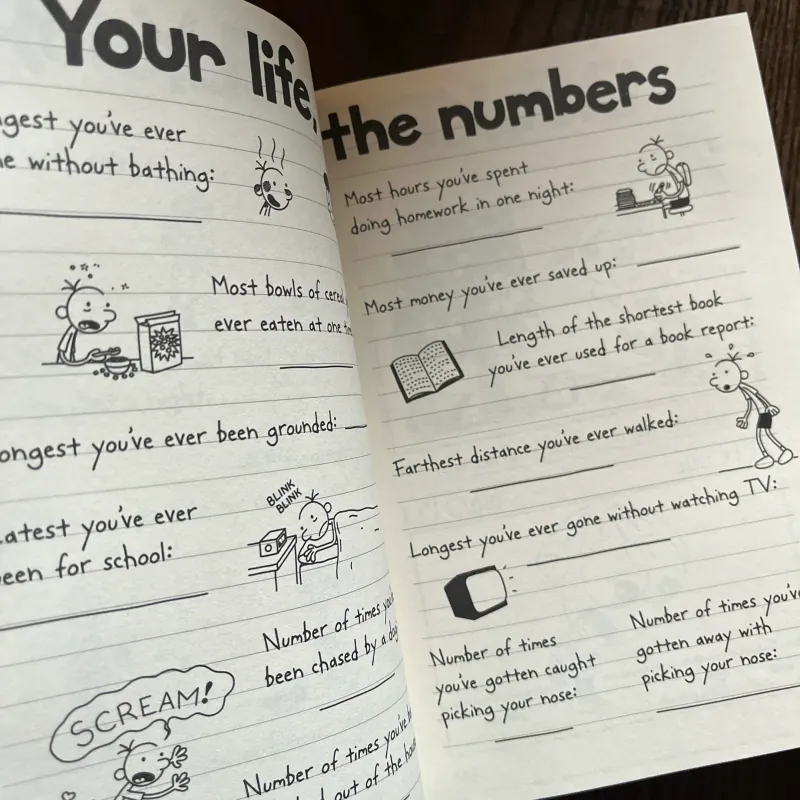 Your life,
you've ever
without bathing:
Most bowls of
ever eaten at one
you've ever been grounded:
you've ever
for school:
BLINK
BLINK
Number of times
been chased by a
SCREAM!
Number of times
out of the
the numbers
Most hours you've spent
doing homework in one night:
Most money you've ever saved up:
Length of the shortest book
you've ever used for a book report:
Farthest distance you've ever walked:
Longest you've ever gone without watching TV:
Number of times
you've gotten caught
picking your nose:
Number of times you've
gotten away with
picking your nose: